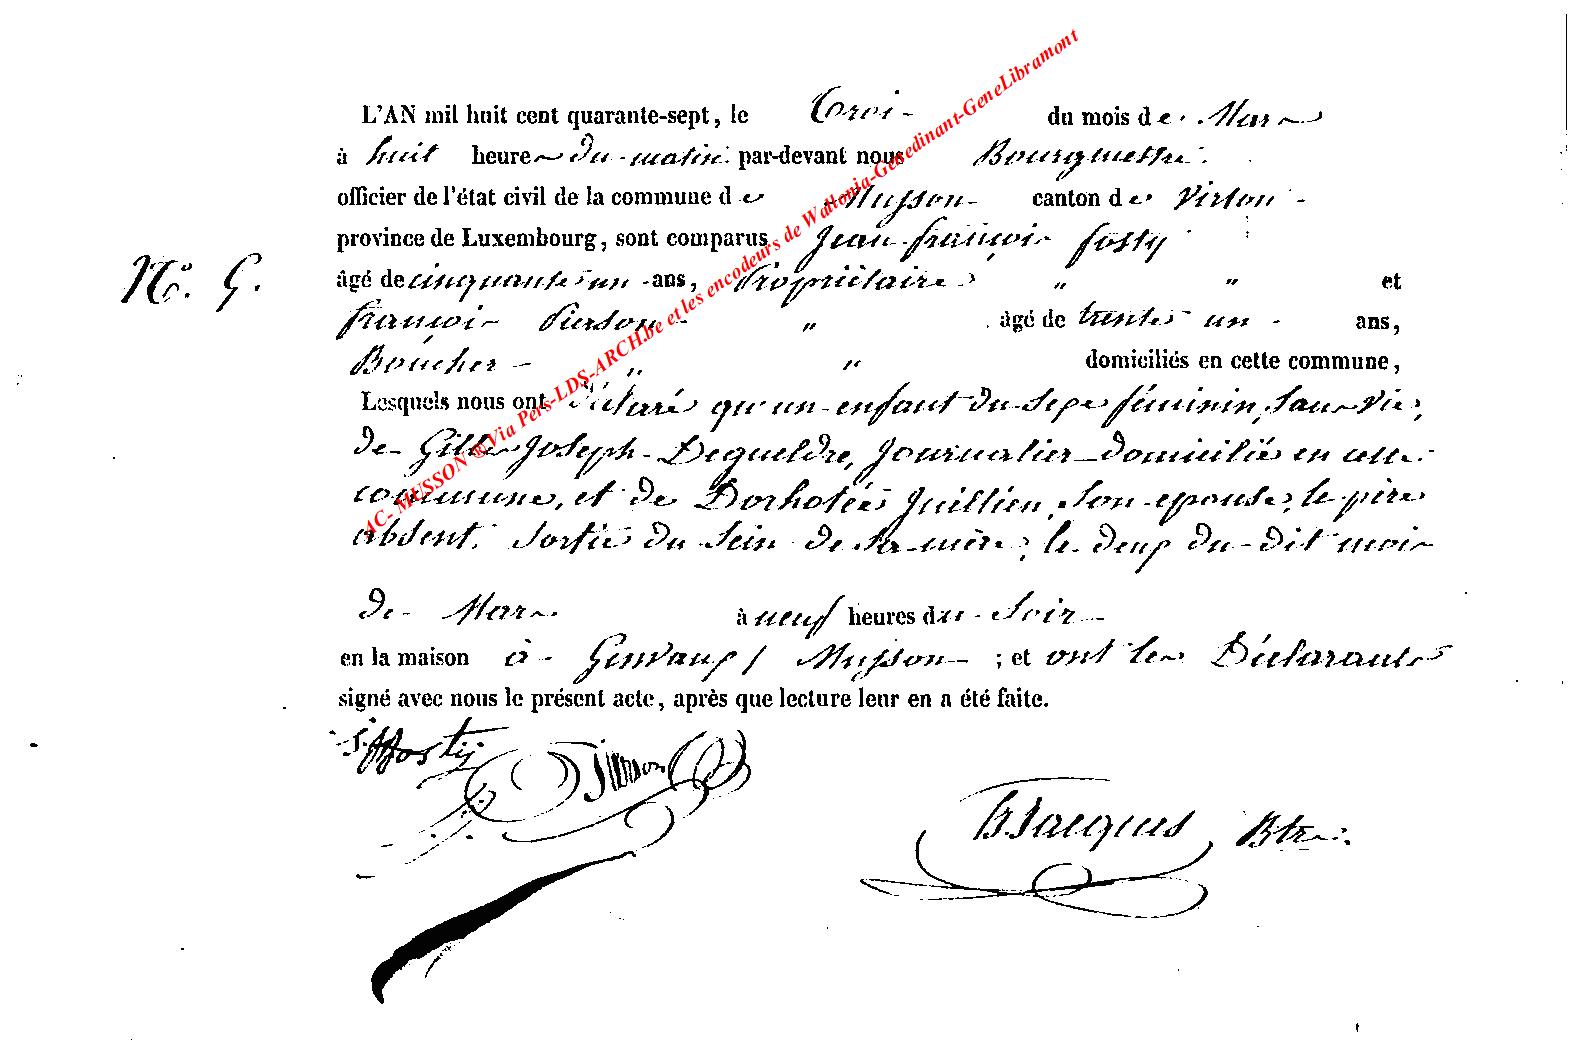 L'AN mil huit cent quarante-sept, le Troi- du mois de Mars
à huit heures du matin par-devant nous Bourgmestre.
officier de l'état civil de la commune de Musson canton de Virton
province de Luxembourg, sont comparus Jean françois fosty
N°.
âgé de cinquante un ans, Propriétaire " " et
françois Pierson " âgé de trente un ans,
Boucher " " domiciliés en cette commune,
Lesquels nous ont déclaré qu'un enfant du Sexe féminin, Sans vie,
de Gille Joseph Degueldre, Journalier domicilié en cette
commune, et de Dorhotée Juillien, Son epouse, le père
absent, Sortie du Sein de Sa mère, le deux du dit mois
de Mars à neuf heures du Soir
en la maison à Musson ; et ont les Déclarants
signé avec nous le présent acte, après que lecture leur en a été faite.
Jffosty Pierson
Jacques Btre.
AC- MUSSON ®Via Pers-LDS-ARCH.be et les encodeurs de Wallonia-Genedinant-GeneLibramont